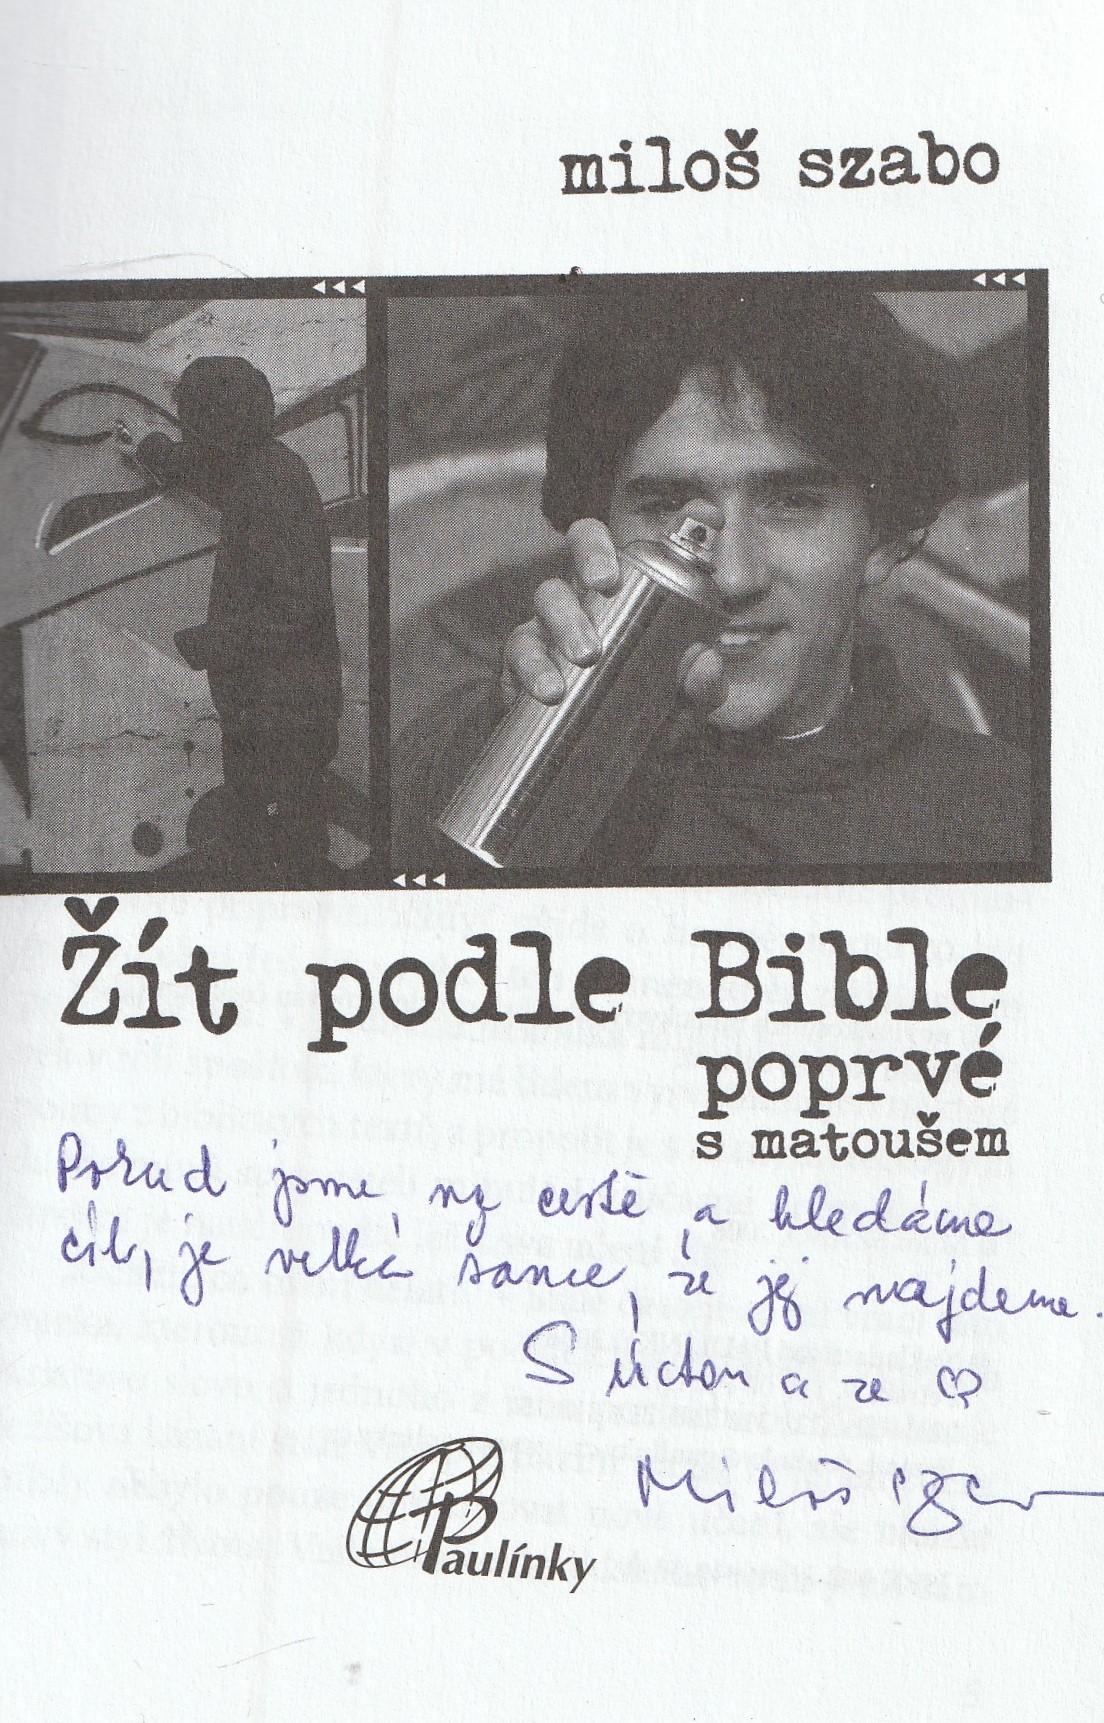 miloš szabo
Žít podle Bible
poprvé
s matoušem
Pokud jsme na cestě a hledáme
cíl, je velká šance, že jej najdeme.
S úctou a ze ♡
Miloš Szabo
Paulínky